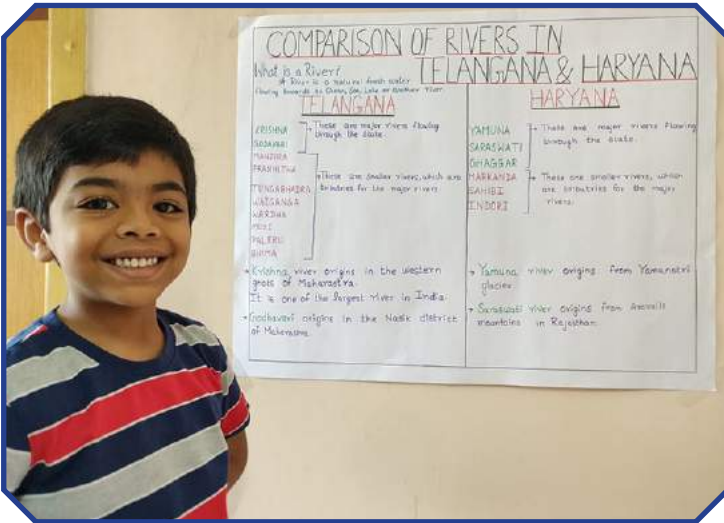 COMPARISON OF RIVERS IN
TELANGANA & HARYANA
What is a River?
* River is a natural fresh water
flowing towards to Ocean, Sea, Lake or another river.
TELANGANA
KRISHNA
GODAVARI
→ These are major rivers flowing
through the state.
MANJIRA
PRANHITHA
TUNGABHADRA
WAISANGA
WARDHA
MUSI
PALERU
BHIMA
→ These are smaller rivers, which are
tributries for the major rivers
→ Krishna river origins in the western
ghats of Maharastra.
It is one of the largest river in India.
→ Godhavari origins in the Nasik district
of Maharastra
HARYANA
YAMUNA
SARASWATI
GHAGGAR
→ These are major rivers flowing
through the state.
MARKANDA
SAHIBI
INDORI
→ These are smaller rivers, which
are tributries for the major
rivers.
→ Yamuna river origins from Yamanotri
glacier
→ Saraswati river origins from Aravalli
mountains in Rajasthan